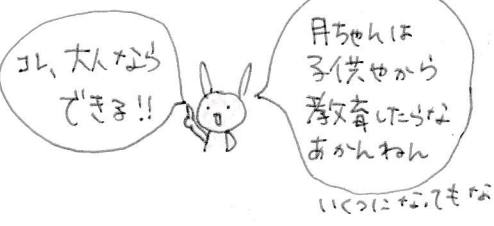 コレ、大人なら
できる!!
月ちゃんは
子供やから
教育したらな
あかんねん
いくつになってもな